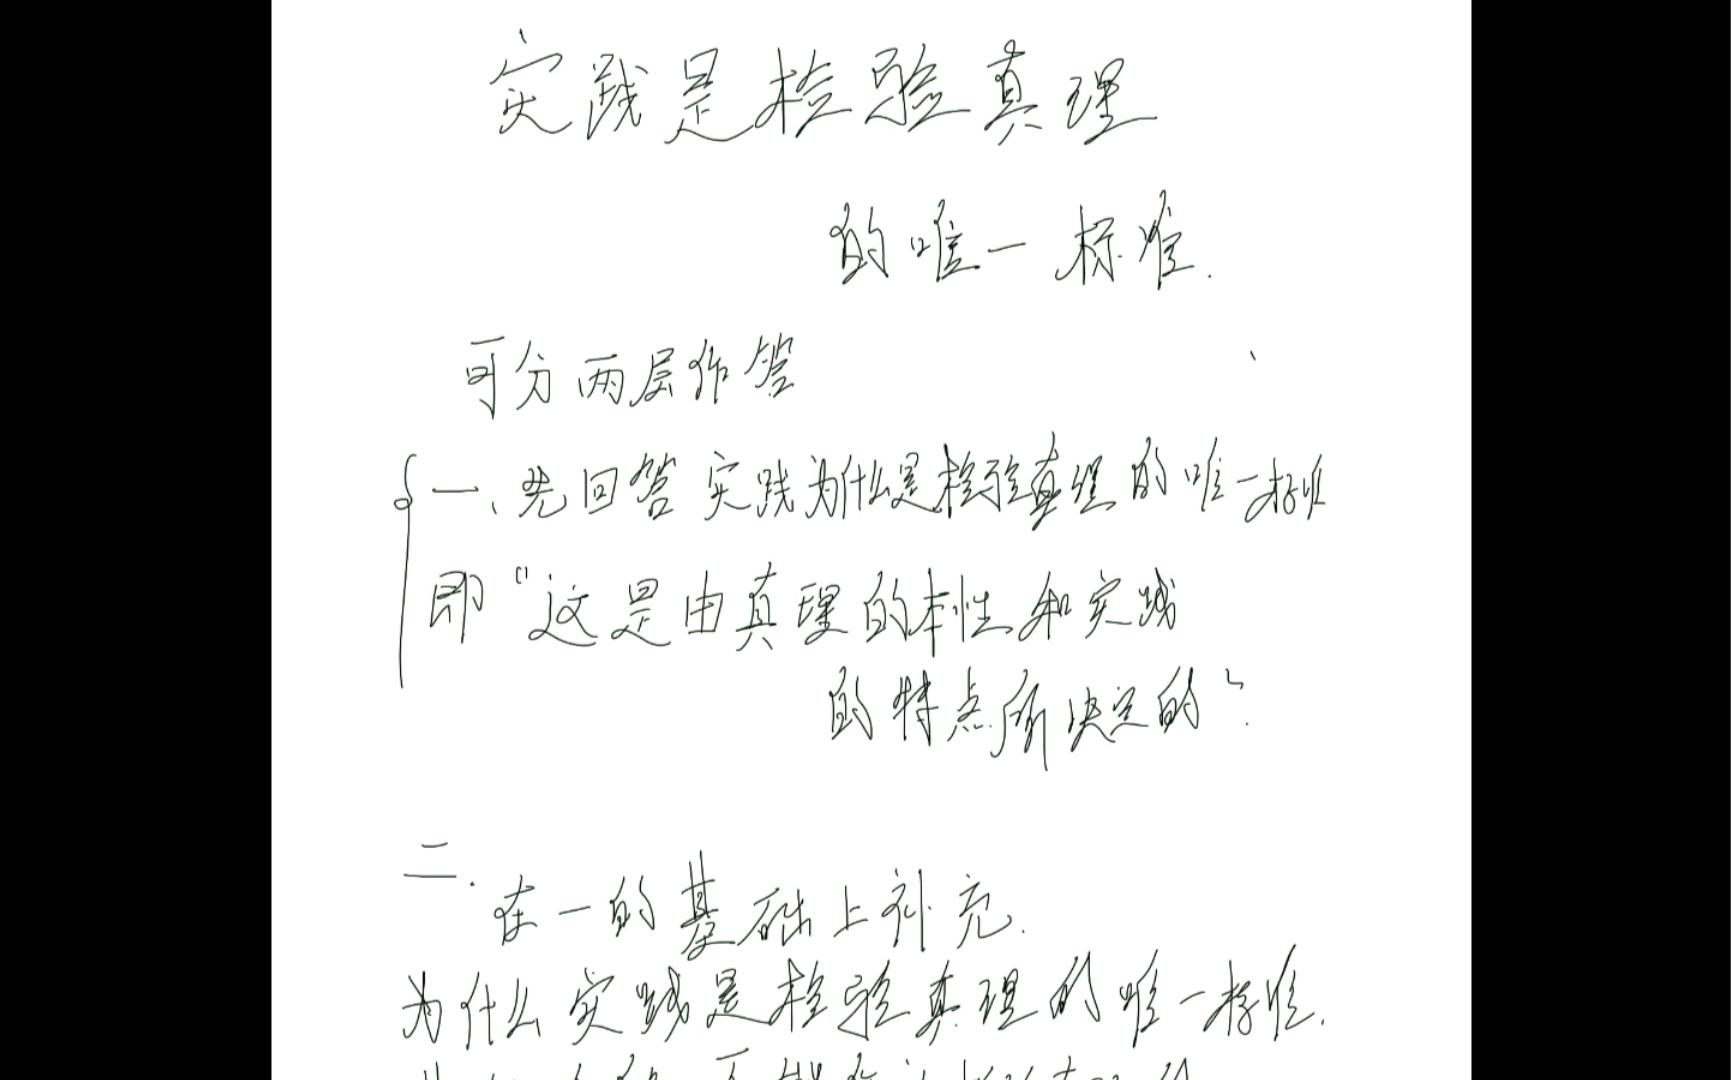 实践是检验真理
的唯一标准.
可分两层作答
一、先回答实践为什么是检验真理的唯一标准
即“这是由真理的本性和实践
的特点所决定的”.
二.
在一的基础上补充.
为什么实践是检验真理的唯一标准.